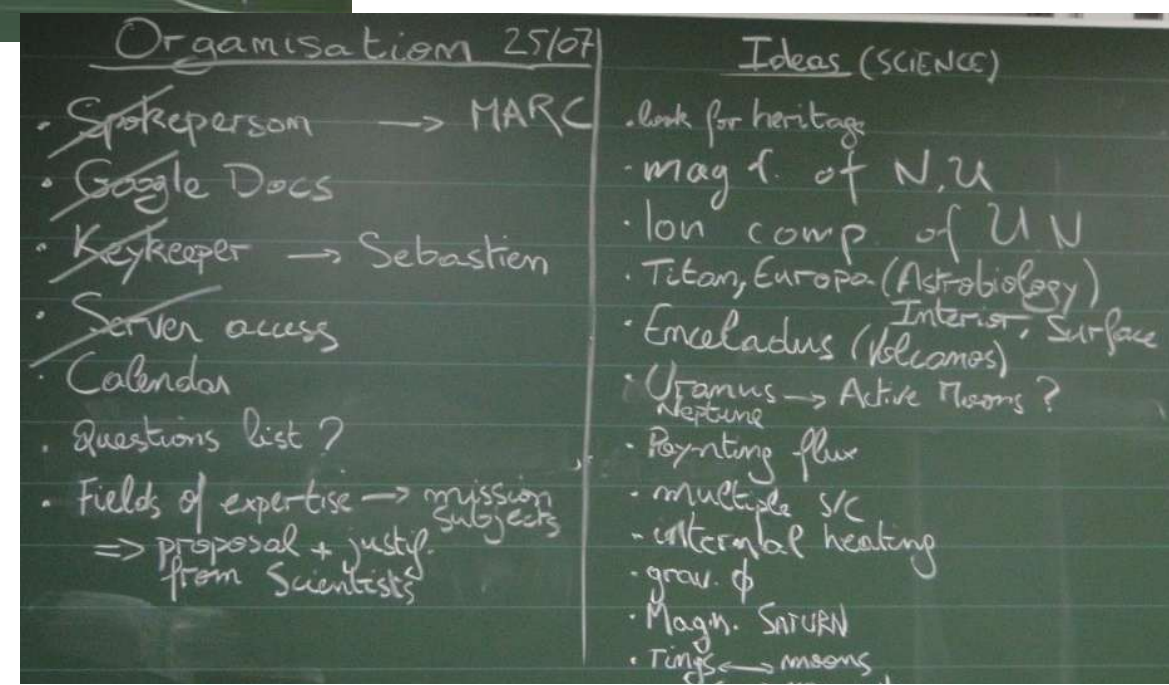 Organisation 25/07
• Spokeperson → MARC
• Google Docs
• Keykeeper → Sebastien
• Server access
• Calendar
• Questions list ?
• Fields of expertise → mission
subjects
=> proposal + justif.
from Scientists
Ideas (SCIENCE)
• look for heritage
• mag f. of N, U
• Ion comp. of U N
• Titan, Europa (Astrobiology)
Interior, Surface
• Enceladus (Volcanos)
• Uranus → Active Moons ?
Neptune
• Poynting flux
• multiple S/C
• internal heating
• grav. ϕ
• Magn. SATURN
• rings ↔ moons